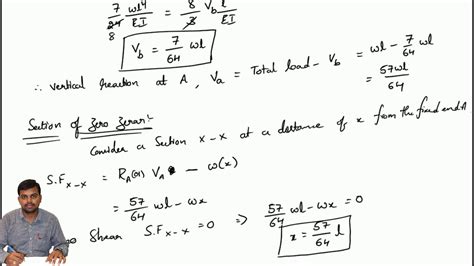 7/24 8 wl⁴/EI = 8/3 V_b l/EI
V_b = 7/64 wl
∴ vertical reaction at A, V_a = Total load - V_b = wl - 7/64 wl
= 57wl/64
Section of Zero
Consider a Section x-x at a distance of x from the fixed end A
S.F x-x = R_A (or) V_A - w(x)
= 57/64 wl - wx
Shear S.F x-x = 0 ⇒ 57/64 wl - wx = 0
x = 57/64 l